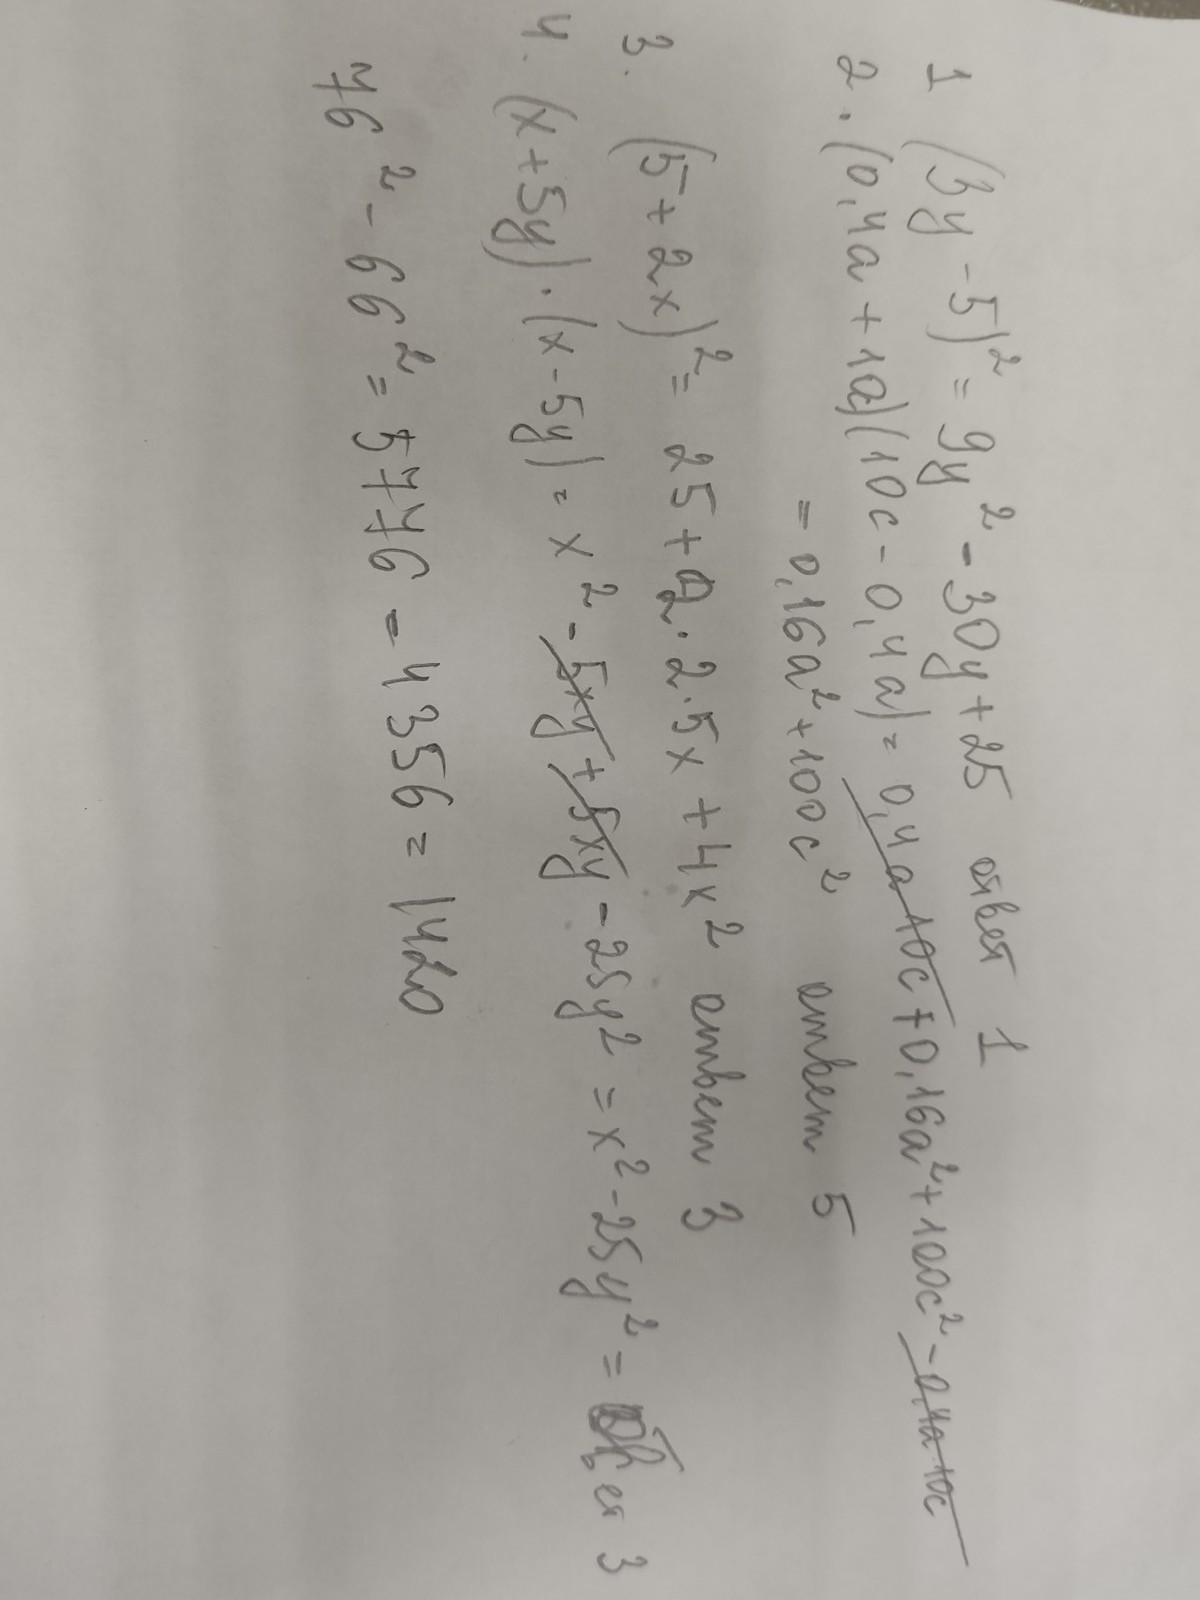 1 (3y - 5)² = 9y² - 30y + 25 ответ 1
2. (0,4a + 10c)(10c - 0,4a) = 0,4a 10c + 0,16a² + 100c² - 0,4a 10c
= 0,16a² + 100c² ответ 5
3. (5 + 2x)² = 25 + 2 · 2 · 5x + 4x² ответ 3
4. (x + 5y) · (x - 5y) = x² - 5xy + 5xy - 25y² = x² - 25y² = 3
76² - 66² = 5776 - 4356 = 1420